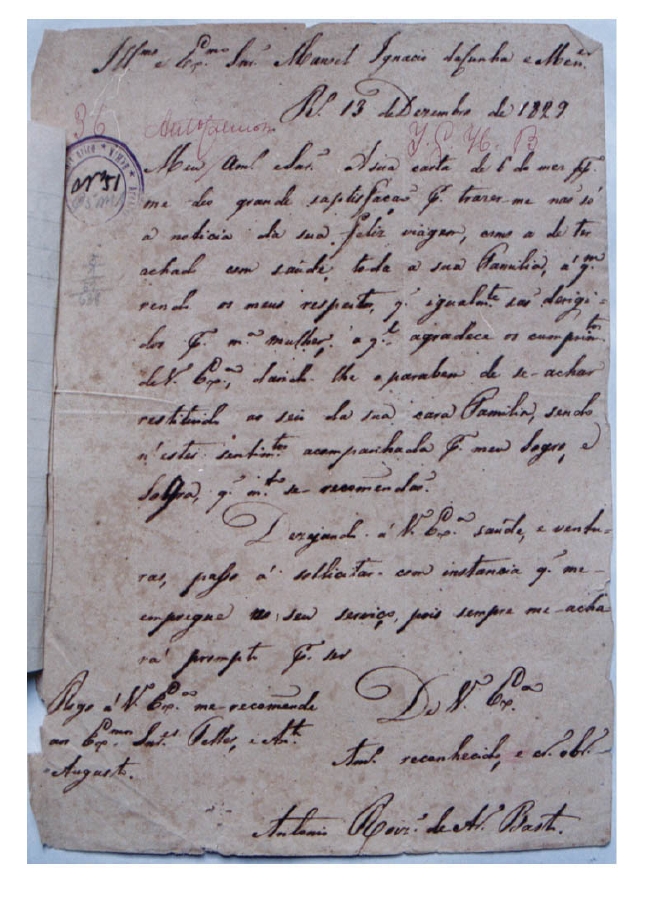 Illmo e Exmo Snr. Manoel Ignacio da Cunha e Men.es
Re. 13 de Dezembro de 1829
36
I. G. H. B
No 51
Meu Amo e Snr. A sua carta de 6 do mez pp.
me deo grande saptisfacaõ p. trazer-me naõ só
a noticia da sua feliz viagem, como a de ter
achado com saúde, toda a sua Familia, á qm
rendo os meus respeitos, q' igualmte saõ derigi-
dos p. ma mulher, a ql agradece os cumprimtos
de V. Exa, dando-lhe o parabem de se-achar
restituido ao seio da sua cara Familia, sendo
n'estes sentimtos acompanhada p. meu Sogro, e
Sogra, q' mto se-recomendaõ.
Dezejando á V. Exa saúde, e ventu-
ras, passo á sollicitar com instancia q' me-
empregue no seu serviço, pois sempre me-acha-
rá prompto pa ser
Rogo á V. Exa me-recomende
aos Exmos Snres e Anto
Augusto.
De V. Exa
Amo reconhecido, e cr. obro
Antonio Roiz. de Ao Basto.